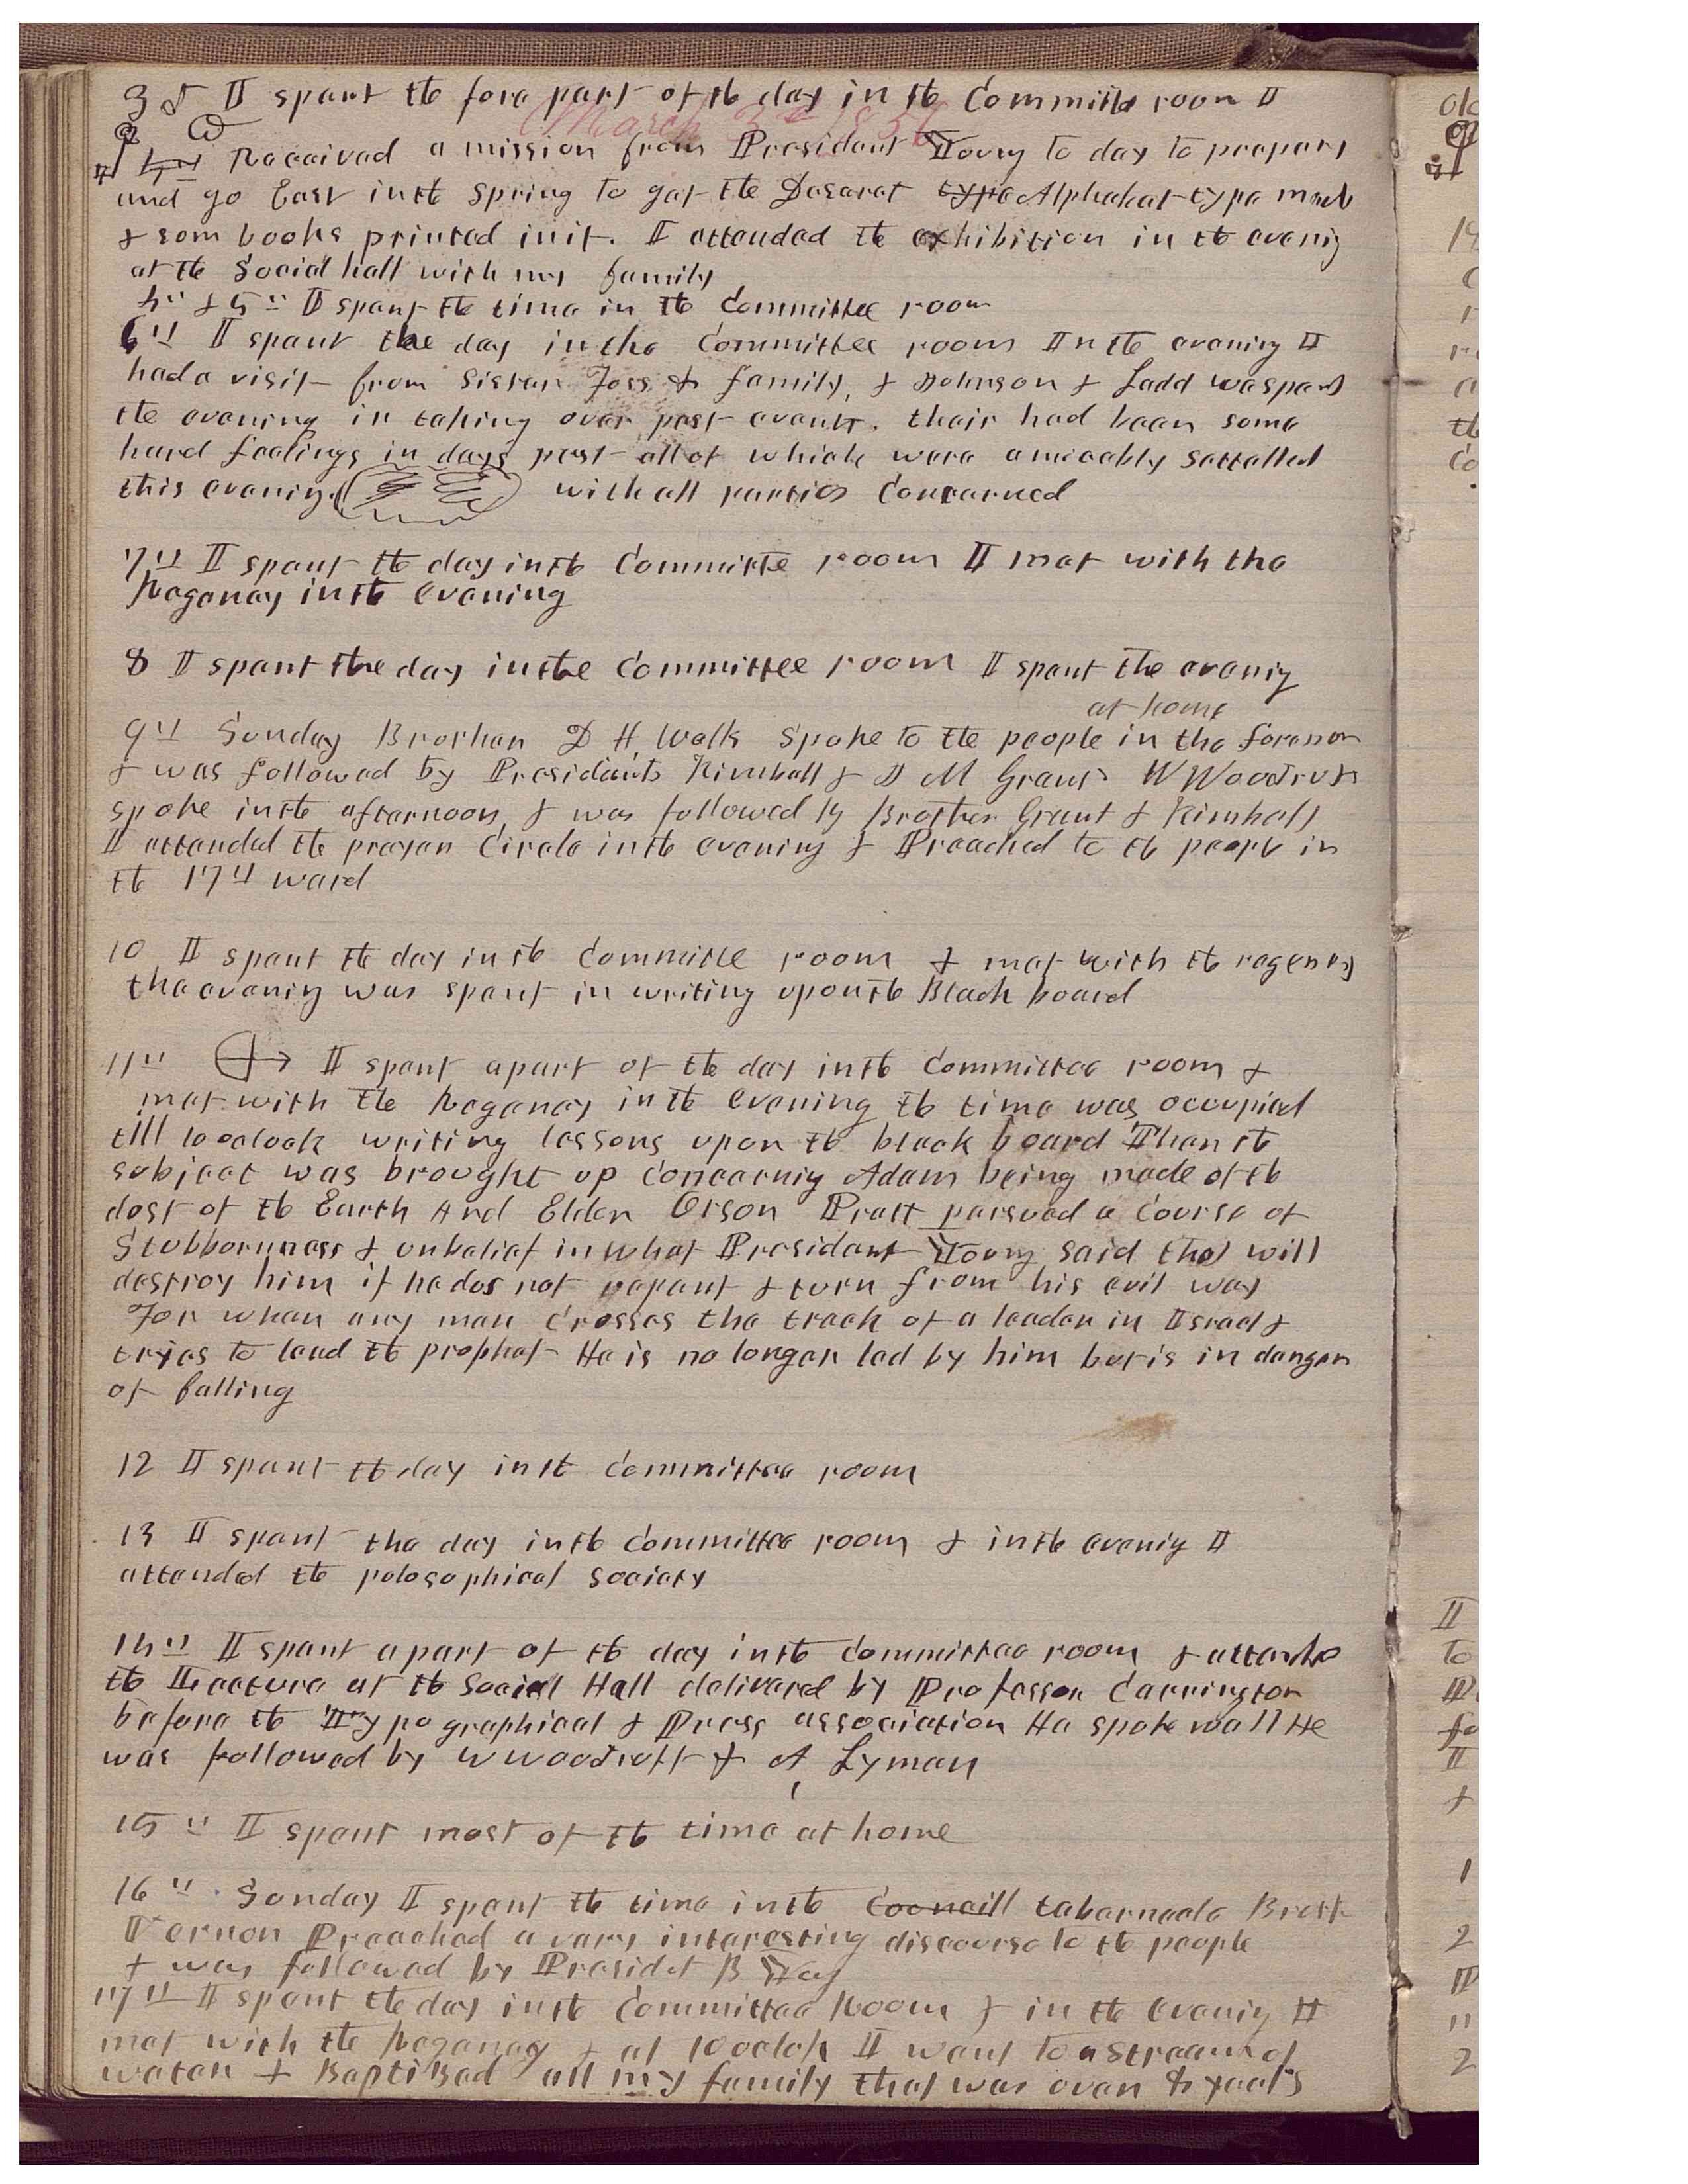 3d I spent the fore part of the day in the Committe room I
March 3d 1856
Received a mission from President Young to day to prepare
and go East in the Spring to get the Deseret type Alphabet type made
& som books printed in it. I attended the exhibition in the evenig
at the Social hall with my family
4th & 5th I spent the time in the Committee room
6th I spent the day in the Committee room In the evening I
had a visit from Sister Foss & family, & Johnson & Ladd we spent
the evening in talking over past events. their had been some
hard feelings in days past all of which were amicably settelled
this evening. with all parties Concerned
7th I spent the day in the Committe room I met with the
Regency in the evening
8 I spent the day in the Committee room I spent the evenig
at home
9th Sunday Brother D H Wells Spoke to the people in the forenoon
& was followed by Presidents Kimball & J M Grant W Woodruff
spoke in the afternoon, & was followed by Brother Grant & Kimball
I attended the prayer Circle in the evening & Preached to the people in
the 17th ward
10 I spent the day in the Committe room & met with the regency
the evenig was spent in writing upon the Black board
11th I spent a part of the day in the Committee room &
met with the Regency in the evening the time was occupied
till 10 oclock writing lessons upon the black board Then the
subject was brought up Concernig Adam being made of the
dust of the Earth And Elder Orson Pratt persued a Course of
Stubbornness & unbelief in what President Young said that will
destroy him if he dos not repent & turn from his evil way
For when any man Crosses the track of a leader in Israel &
tryes to lead the prophet He is no longer led by him but is in danger
of falling
12 I spent the day in the Committee room
13 I spent the day in the Committee room & in the evenig I
attended the polosophical Society
14th I spent a part of the day in the Committee room & attended
the Lecture at the Social Hall delivered by Professor Carrington
before the Typographical & Press association He spoke well He
was followed by W Woodruff & A Lyman
15th I spent most of the time at home
16th Sunday I spent the time in the Councill tabernacle Broth
Vernon Preached a very interesting discourse to the people
& was followed by Presidet B Young
17th I spent the day in the Committee Room & in the evenig I
met with the Regency & at 10 oclok I went to a stream of
water & Baptized all my family that was over 8 years